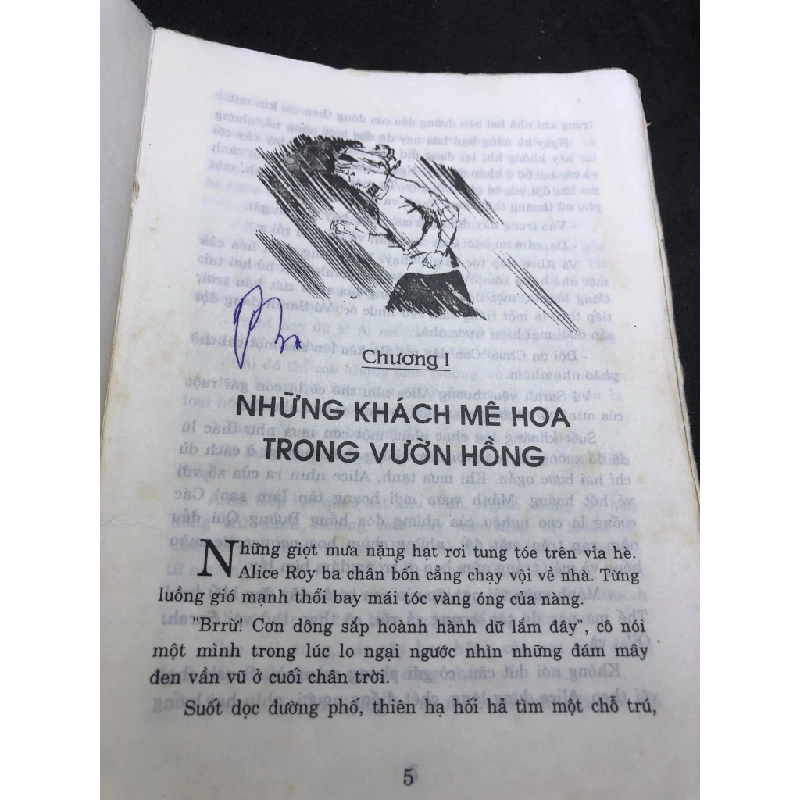 Chương I
NHỮNG KHÁCH MÊ HOA
TRONG VƯỜN HỒNG
Những giọt mưa nặng hạt rơi tung tóe trên vỉa hè.
Alice Roy ba chân bốn cẳng chạy vội về nhà. Từng
luồng gió mạnh thổi bay mái tóc vàng óng của nàng.
"Brrừ! Cơn dông sắp hoành hành dữ lắm đây", cô nói
một mình trong lúc lo ngại ngước nhìn những đám mây
đen vần vũ ở cuối chân trời.
Suốt dọc đường phố, thiên hạ hối hả tìm một chỗ trú,
5